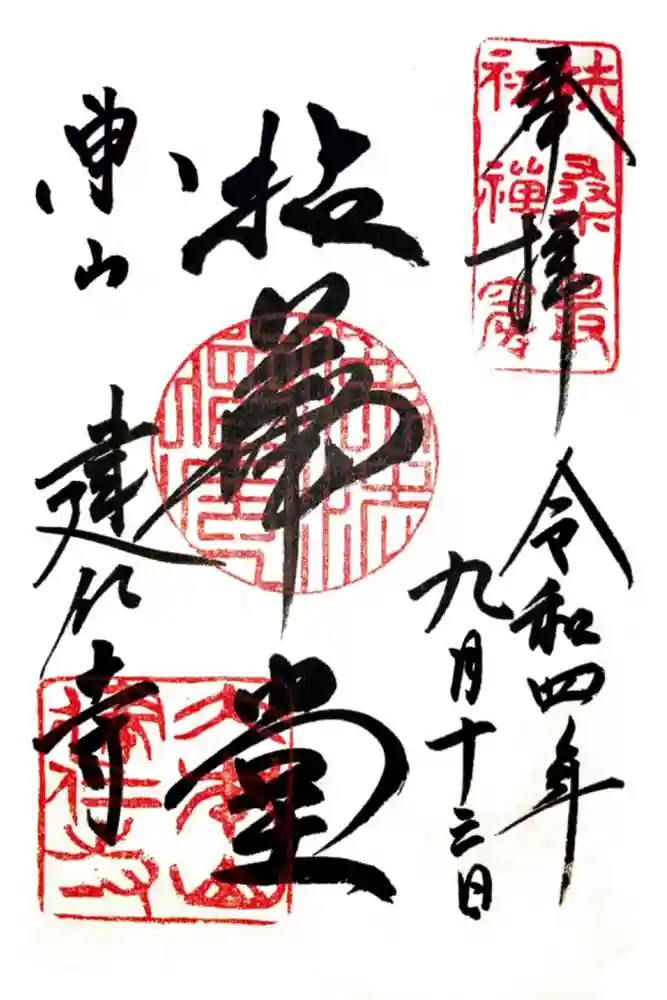 奉拝
扶桑最
初禅窟
令和四年
九月十三日
拈華堂
東山
建仁寺